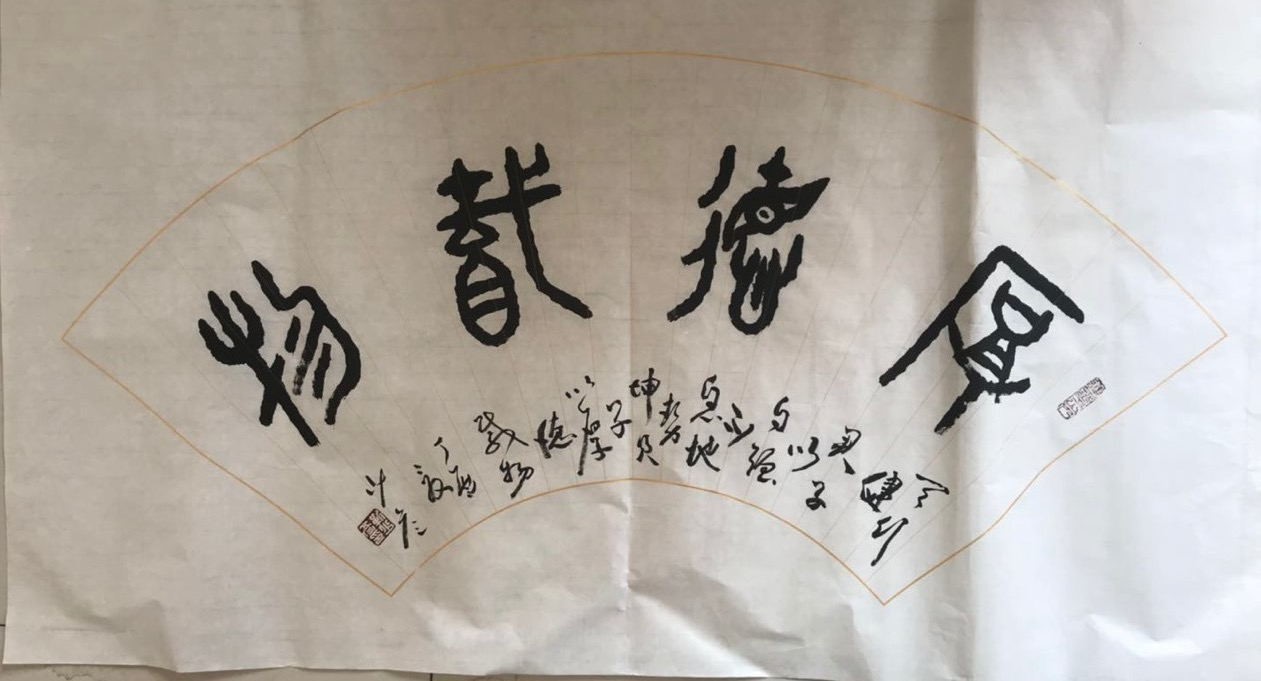 厚德載物
天行健君子以自強不息地勢坤君子以厚德載物
丁酉